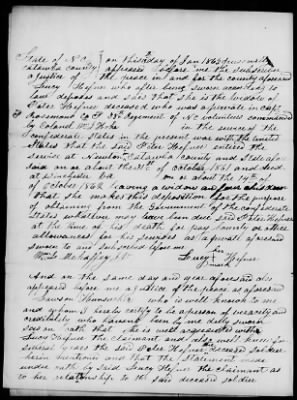 State of N.C. } on this day 2 of Jan 1863 personally
Catawba county } appeared before me the subscriber
a Justice of the peace in and for the county aforesaid
Lucy Hefner who after being sworn according to
law deposes and says that she is the widow of
Peter Hefner deceased who was a private in Capt
Rosemond Co F 38th Regiment of N.C. volunteers commanded
by Colonel W. J. Hoke in the service of the
confederate States in the present war with the united
States that the said Peter Hefner entered the
service at Newton Catawba County and State afore
said on or about the 31st of October 1861 and died
at Winchester Va on or about the 19th
of October 1862 leaving a widow
that she makes this deposition for the purpose
of obtaining from the Government of the confederate
States whatever may have been due said Peter Hefner
at the time of his death for pay bounty or other
allowances for his services as a private aforesaid
sworn to and subscribed before me her
Wm L Mehaffey J.P. Lucy Hefner
And on the same day and year aforesaid also
appeared before me a Justice of the peace as aforesaid
Lawson Hunsucker who is well known to me
and whom I hereby certify to be a person of veracity and
credibility who having been by me duly sworn
says on oath that he is well acquainted with
Lucy Hefner the claimant and also well knew for
several years the said Peter Hefner deceased soldier
herein mentioned and that the statement made
under oath by said Lucy Hefner the claimant as
to her relationship to the said deceased soldier